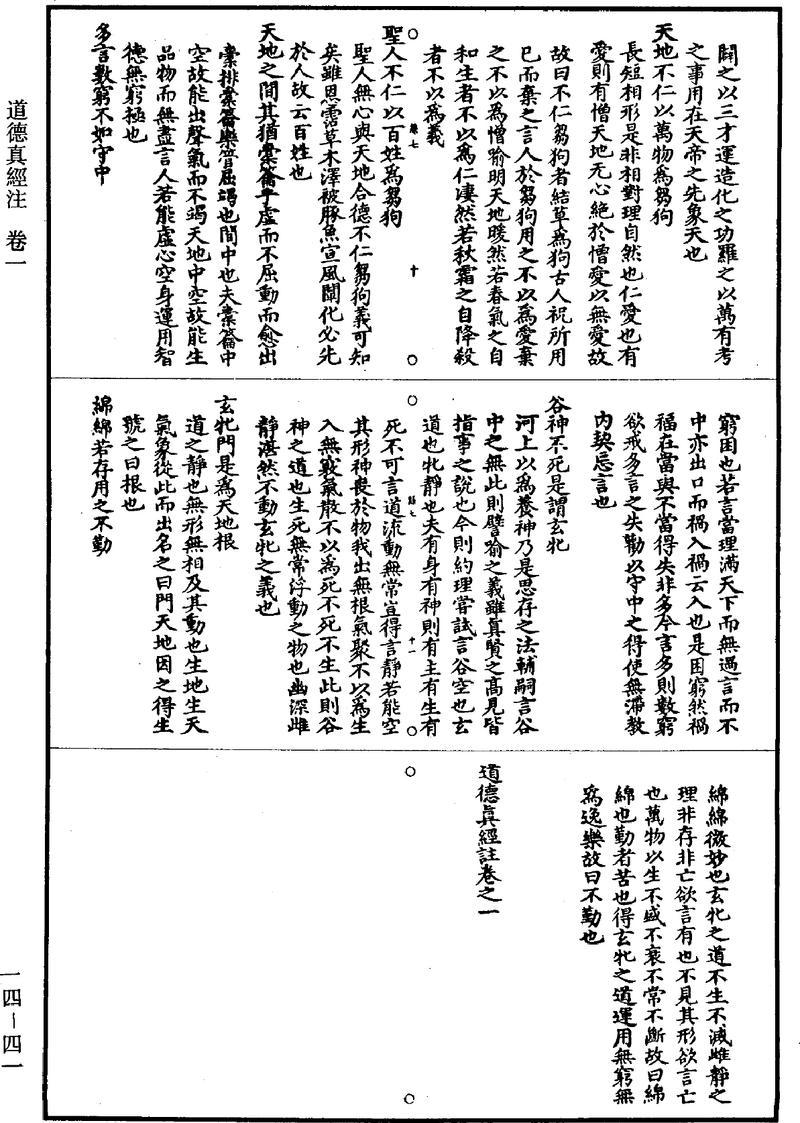 闢之以三才運造化之功羅之以萬有考
之事用在天帝之先象天也
天地不仁以萬物為芻狗
長短相形是非相對理自然也仁愛也有
愛則有憎天地无心絕於憎愛以無愛故
故曰不仁芻狗者結草為狗古人祝所用
已而棄之言人於芻狗用之不以為愛棄
之不以為憎喻明天地暖然若春氣之自
和生者不以為仁淒然若秋霜之自降殺
者不以為義
聖人不仁以百姓為芻狗
聖人無心與天地合德不仁芻狗義可知
矣雖恩霑草木澤被豚魚宣風闡化必先
於人故云百姓也
天地之間其猶橐籥乎虛而不屈動而愈出
橐排橐籥樂管屈竭也間中也夫橐籥中
空故能出聲氣而不竭天地中空故能生
品物而無盡言人若能虛心空身運用智
德無窮極也
多言數窮不如守中
窮困也若言當理滿天下而無過言而不
中亦出口而禍入禍云入也是困窮然禍
福在當與不當得失非多今言多則數窮
欲戒多言之失勸以守中之得使無滯教
內契忘言也
谷神不死是謂玄牝
河上以為養神乃是思存之法輔嗣言谷
中之無此則譬喻之義雖真賢之高見皆
指事之說也今則約理嘗試言谷空也玄
道也牝靜也夫有身有神則有主有生有
死不可言道流動無常豈得言靜若能空
其形神喪於物我出無根氣聚不以為生
入無竅氣散不以為死不死不生此則谷
神之道也生死無常浮動之物也幽深雌
靜湛然不動玄牝之義也
玄牝門是為天地根
道之靜也無形無相及其動也生地生天
氣象從此而出名之曰門天地因之得生
號之曰根也
綿綿若存用之不勤
綿綿微妙也玄牝之道不生不滅雌靜之
理非存非亡欲言有也不見其形欲言亡
也萬物以生不盛不衰不常不斷故曰綿
綿也勤者苦也得玄牝之道運用無窮無
為逸樂故曰不勤也
道德真經註卷之一
道德真經注 卷一
一四—四一